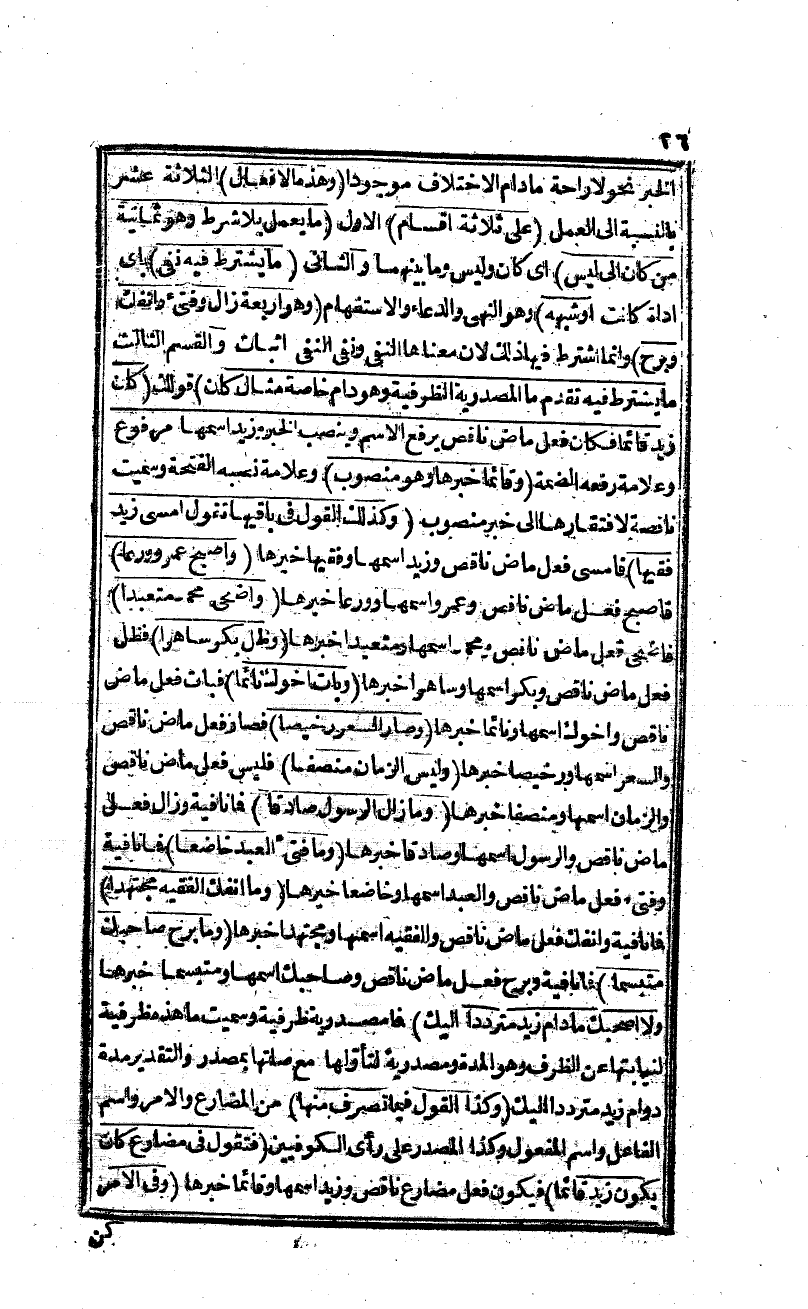 ٢٦
الخبر نحو لا راحة مادام الاختلاف موجودا (وهذه الافعال) الثلاثة عشر
بالنسبة الى العمل (على ثلاثة اقسام) الاول (ما يعمل بلا شرط وهو ثمانية
من كان الى ليس) اى كان وليس وما بينهما والثانى (ما يشترط فيه نفى) باى
اداة كانت (وشبهه) وهو النهى والدعاء والاستفهام (وهو اربعة زال وفتىء وانفك
وبرح) وانما اشترط فيها ذلك لان معناها النفى ونفى النفى اثبات والقسم الثالث
ما يشترط فيه تقدم ما المصدرية الظرفية وهو دام خاصة مثال كان) قولك (كان
زيد قائما فكان فعل ماض ناقص يرفع الاسم وينصب الخبر وزيد اسمها مرفوع
وعلامة رفعه الضمة (وقائما خبرها وهو منصوب) وعلامة نصبه الفتحة وسميت
ناقصة لافتقارها الى خبر منصوب (وكذلك القول فى باقيها تقول امسى زيد
فقيها) فامسى فعل ماض ناقص وزيد اسمها وفقيها خبرها (واصبح عمرو ورعا)
فاصبح فعل ماض ناقص وعمرو اسمها وورعا خبرها (واضحى محمد متعبدا)
فاضحى فعل ماض ناقص ومحمد اسمها ومتعبدا خبرها (وظل بكر ساهرا) فظل
فعل ماض ناقص وبكر اسمها وساهرا خبرها (وبات اخوك نائما) فبات فعل ماض
ناقص واخوك اسمها ونائما خبرها (وصار السعر رخيصا) فصار فعل ماض ناقص
والسعر اسمها ورخيصا خبرها (وليس الزمان منصفا) فليس فعل ماض ناقص
والزمان اسمها ومنصفا خبرها (وما زال الرسول صادقا) فما نافية وزال فعل
ماض ناقص والرسول اسمها وصادقا خبرها (وما فتىء العبد خاضعا) فما نافية
وفتىء فعل ماض ناقص والعبد اسمها وخاضعا خبرها (وما انفك الفقيه مجتهدا)
فما نافية وانفك فعل ماض ناقص والفقيه اسمها ومجتهدا خبرها (وما برح صاحبك
متبسما) فما نافية وبرح فعل ماض ناقص وصاحبك اسمها ومتبسما خبرها
ولا اصحبك مادام زيد مترددا اليك) فما مصدرية ظرفية وسميت ما هذه ظرفية
لنيابتها عن الظرف وهو المدة ومصدرية لتأولها مع صلتها بمصدر والتقدير مدة
دوام زيد مترددا اليك (وكذا القول فيما تصرف منها) من المضارع والامر واسم
الفاعل واسم المفعول وكذا المصدر على رأى الكوفيين (فتقول فى مضارع كان
يكون زيد قائما) فيكون فعل مضارع ناقص وزيد اسمها وقائما خبرها (وفى الامر
كن